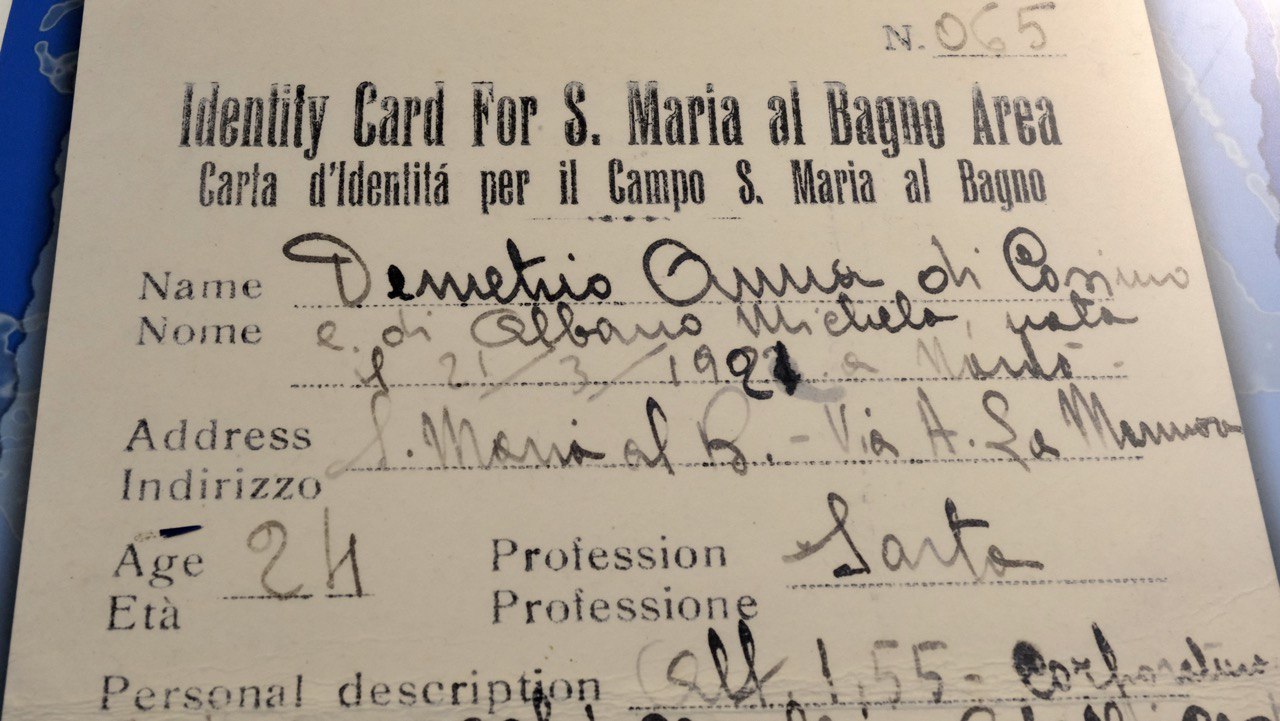 N. 065
Identity Card For S. Maria al Bagno Area
Carta d'Identitá per il Campo S. Maria al Bagno
Name Demetrio Anna di Cosimo
Nome e di Albano Michela, nata
il 21/3/1921 a Nardò -
Address S. Maria al B. - Via A. La Marmora
Indirizzo
Age 24 Profession Sarta
Età Professione
Personal description Alt. 1,55 - Corporatura